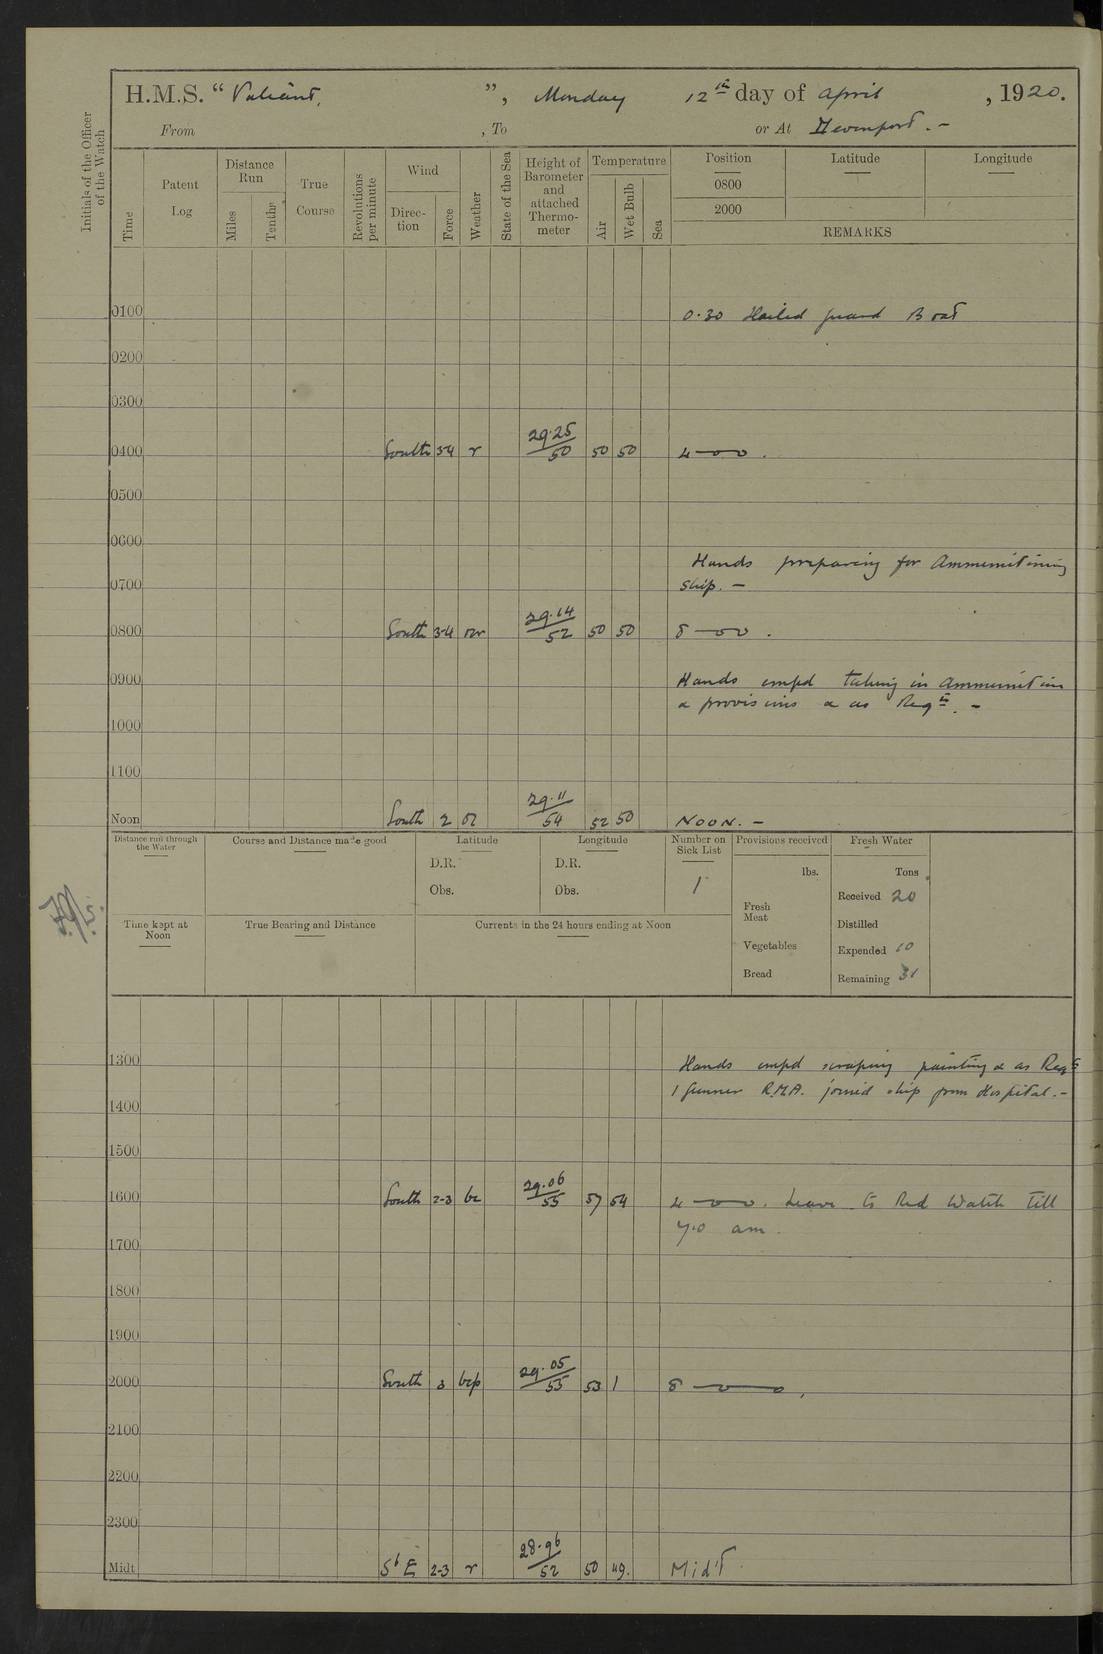 H.M.S. “ Valiant, ”, Monday 12th day of April , 1920.
From , To or At Devonport. -
Initials of the Officer of the Watch
Time
Patent Log
Distance Run
Miles
Tenths
True Course
Revolutions per minute
Wind
Direc- tion
Force
Weather
State of the Sea
Height of Barometer and attached Thermo- meter
Temperature
Air
Wet Bulb
Sea
Position Latitude Longitude
0800
2000
REMARKS
0100 0·30 Hailed guard Boat
0200
0300
0400 South 3-4 r 29·25/50 50 50 4—00.
0500
0600
Hands preparing for Ammunitioning
0700 ship. -
0800 South 3-4 or 29·14/52 50 50 8—00.
0900 Hands empd taking in Ammunition
& provisions & as Reqd. -
1000
1100
Noon South 2 or 29·11/54 52 50 NOON. -
Distance run through the Water
Course and Distance made good
Latitude
D.R.
Obs.
Longitude
D.R.
Obs.
Number on Sick List
1
Provisions received
lbs.
Fresh Meat
Vegetables
Bread
Fresh Water
Tons
Received 20
Distilled
Expended 10
Remaining 31
Time kept at Noon
True Bearing and Distance
Currents in the 24 hours ending at Noon
1300 Hands empd scraping painting & as Reqd
1 Gunner R.M.A. joined ship from Hospital. -
1400
1500
1600 South 2-3 bc 29·06/55 57 54 4—00. Leave to Red Watch till
7.0 am.
1700
1800
1900
2000 South 3 bcp 29·05/53 53 1 8—00,
2100
2200
2300
Midt SbE 2-3 r 28·96/52 50 49. Mid't